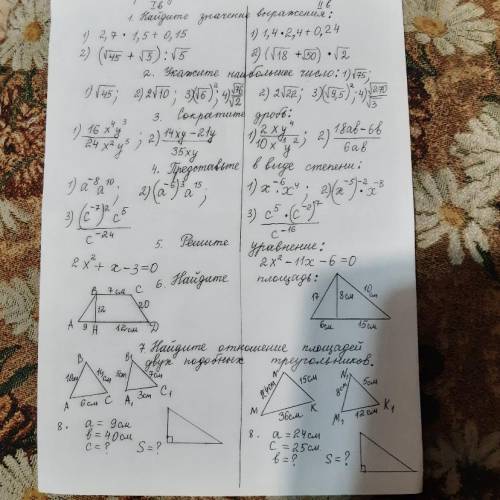 Iв IIв
1. Найдите значение выражения:
1) 2,7 · 1,5 + 0,15 1) 1,4 · 2,4 + 0,24
2) (√45 + √5) : √5 2) (√18 + √50) · √2
2. Укажите наибольшее число: 1) √75;
1) √45; 2) 2√10; 3) (√6)²; 4) 2) 2√22; 3) (√9,5)²; 4) √270/√3
3. Сократите дробь:
1) 16x⁴y³/24x²y⁵; 2) 14xy-21y/35xy 1) 2xy⁴/10x³y²; 2) 18ab-6b/6ab
4. Представьте в виде степени:
1) a⁻⁸a¹⁰; 2) (a⁻⁶)³a¹⁵; 1) x⁻⁶·x⁴; 2) (x⁻⁵)⁻²·x⁻³
3) (c⁻⁷)²c⁵/c⁻²⁴ 3) c⁵·(c⁻²)⁷/c⁻¹⁶
5. Решите уравнение:
2x² + x - 3 = 0 2x² - 11x - 6 = 0
6. Найдите площадь:
B 7см C
12 20
A 9 H 12см D
17 8см 10см
6см 15см
7. Найдите отношение площадей
двух подобных треугольников.
B 14см
A 6см C
B₁ 7см
A₁ 3см C₁
N 24см 15см
M 36см K
N₁ 8см 5см
M₁ 12см K₁
8. a = 9см 8. a = 24см
b = 40см c = 25см
c = ? S = ? b = ? S = ?